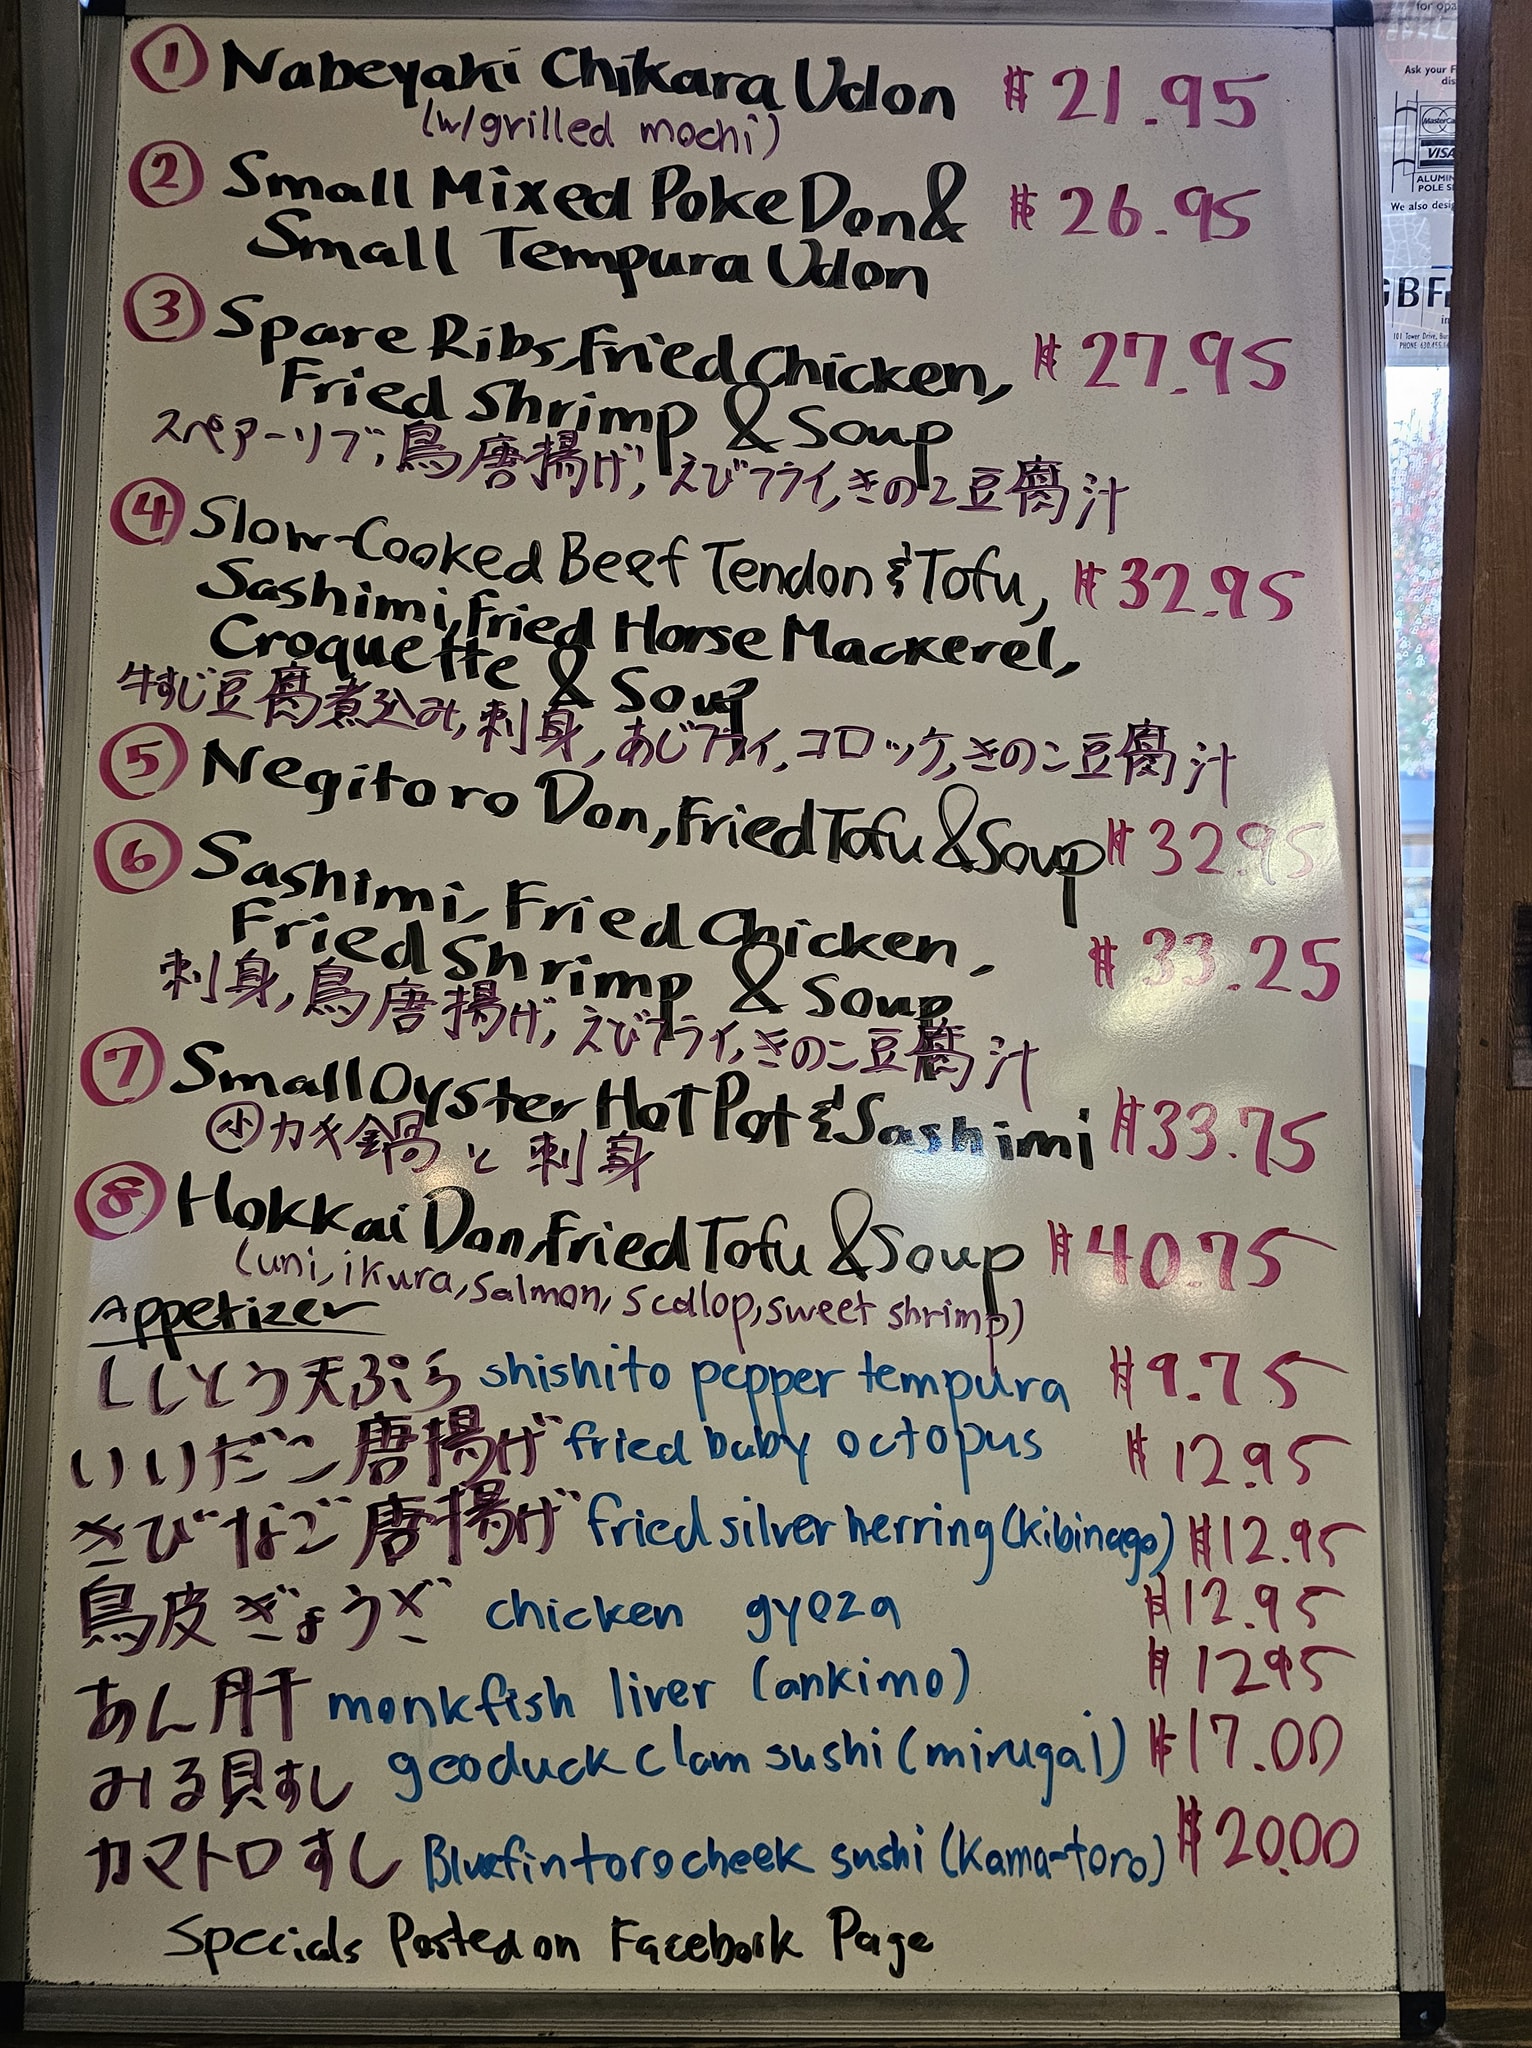 ① Nabeyaki Chikara Udon $21.95
(w/grilled mochi)
② Small Mixed Poke Don & $26.95
Small Tempura Udon
③ Spare Ribs, Fried Chicken, $27.95
Fried Shrimp & Soup
スペアーリブ, 鳥唐揚げ, えびフライ, きのこ豆腐汁
④ Slow-Cooked Beef Tendon & Tofu, $32.95
Sashimi, Fried Horse Mackerel,
Croquette & Soup
牛すじ豆腐煮込み, 刺身, あじフライ, コロッケ, きのこ豆腐汁
⑤ Negitoro Don, Fried Tofu & Soup $32.95
⑥ Sashimi, Fried Chicken, $33.25
Fried Shrimp & Soup
刺身, 鳥唐揚げ, えびフライ, きのこ豆腐汁
⑦ Small Oyster Hot Pot & Sashimi $33.75
小カキ鍋と刺身
⑧ Hokkai Don, Fried Tofu & Soup $40.75
(uni, ikura, salmon, scallop, sweet shrimp)
Appetizer
ししとう天ぷら shishito pepper tempura $9.75
いいだこ唐揚げ fried baby octopus $12.95
きびなご唐揚げ fried silver herring (kibinago) $12.95
鳥皮ぎょうざ chicken gyoza $12.95
あん肝 monkfish liver (ankimo) $12.95
みる貝すし geoduck clam sushi (mirugai) $17.00
カマトロすし Bluefin toro cheek sushi (Kama-toro) $20.00
Specials Posted on Facebook Page
for opa
Ask your F
dis
MasterCa
VISA
ALUMIN
POLE S
We also desig
GB F
in
101 Tower Drive, Bur
PHONE 630.455.